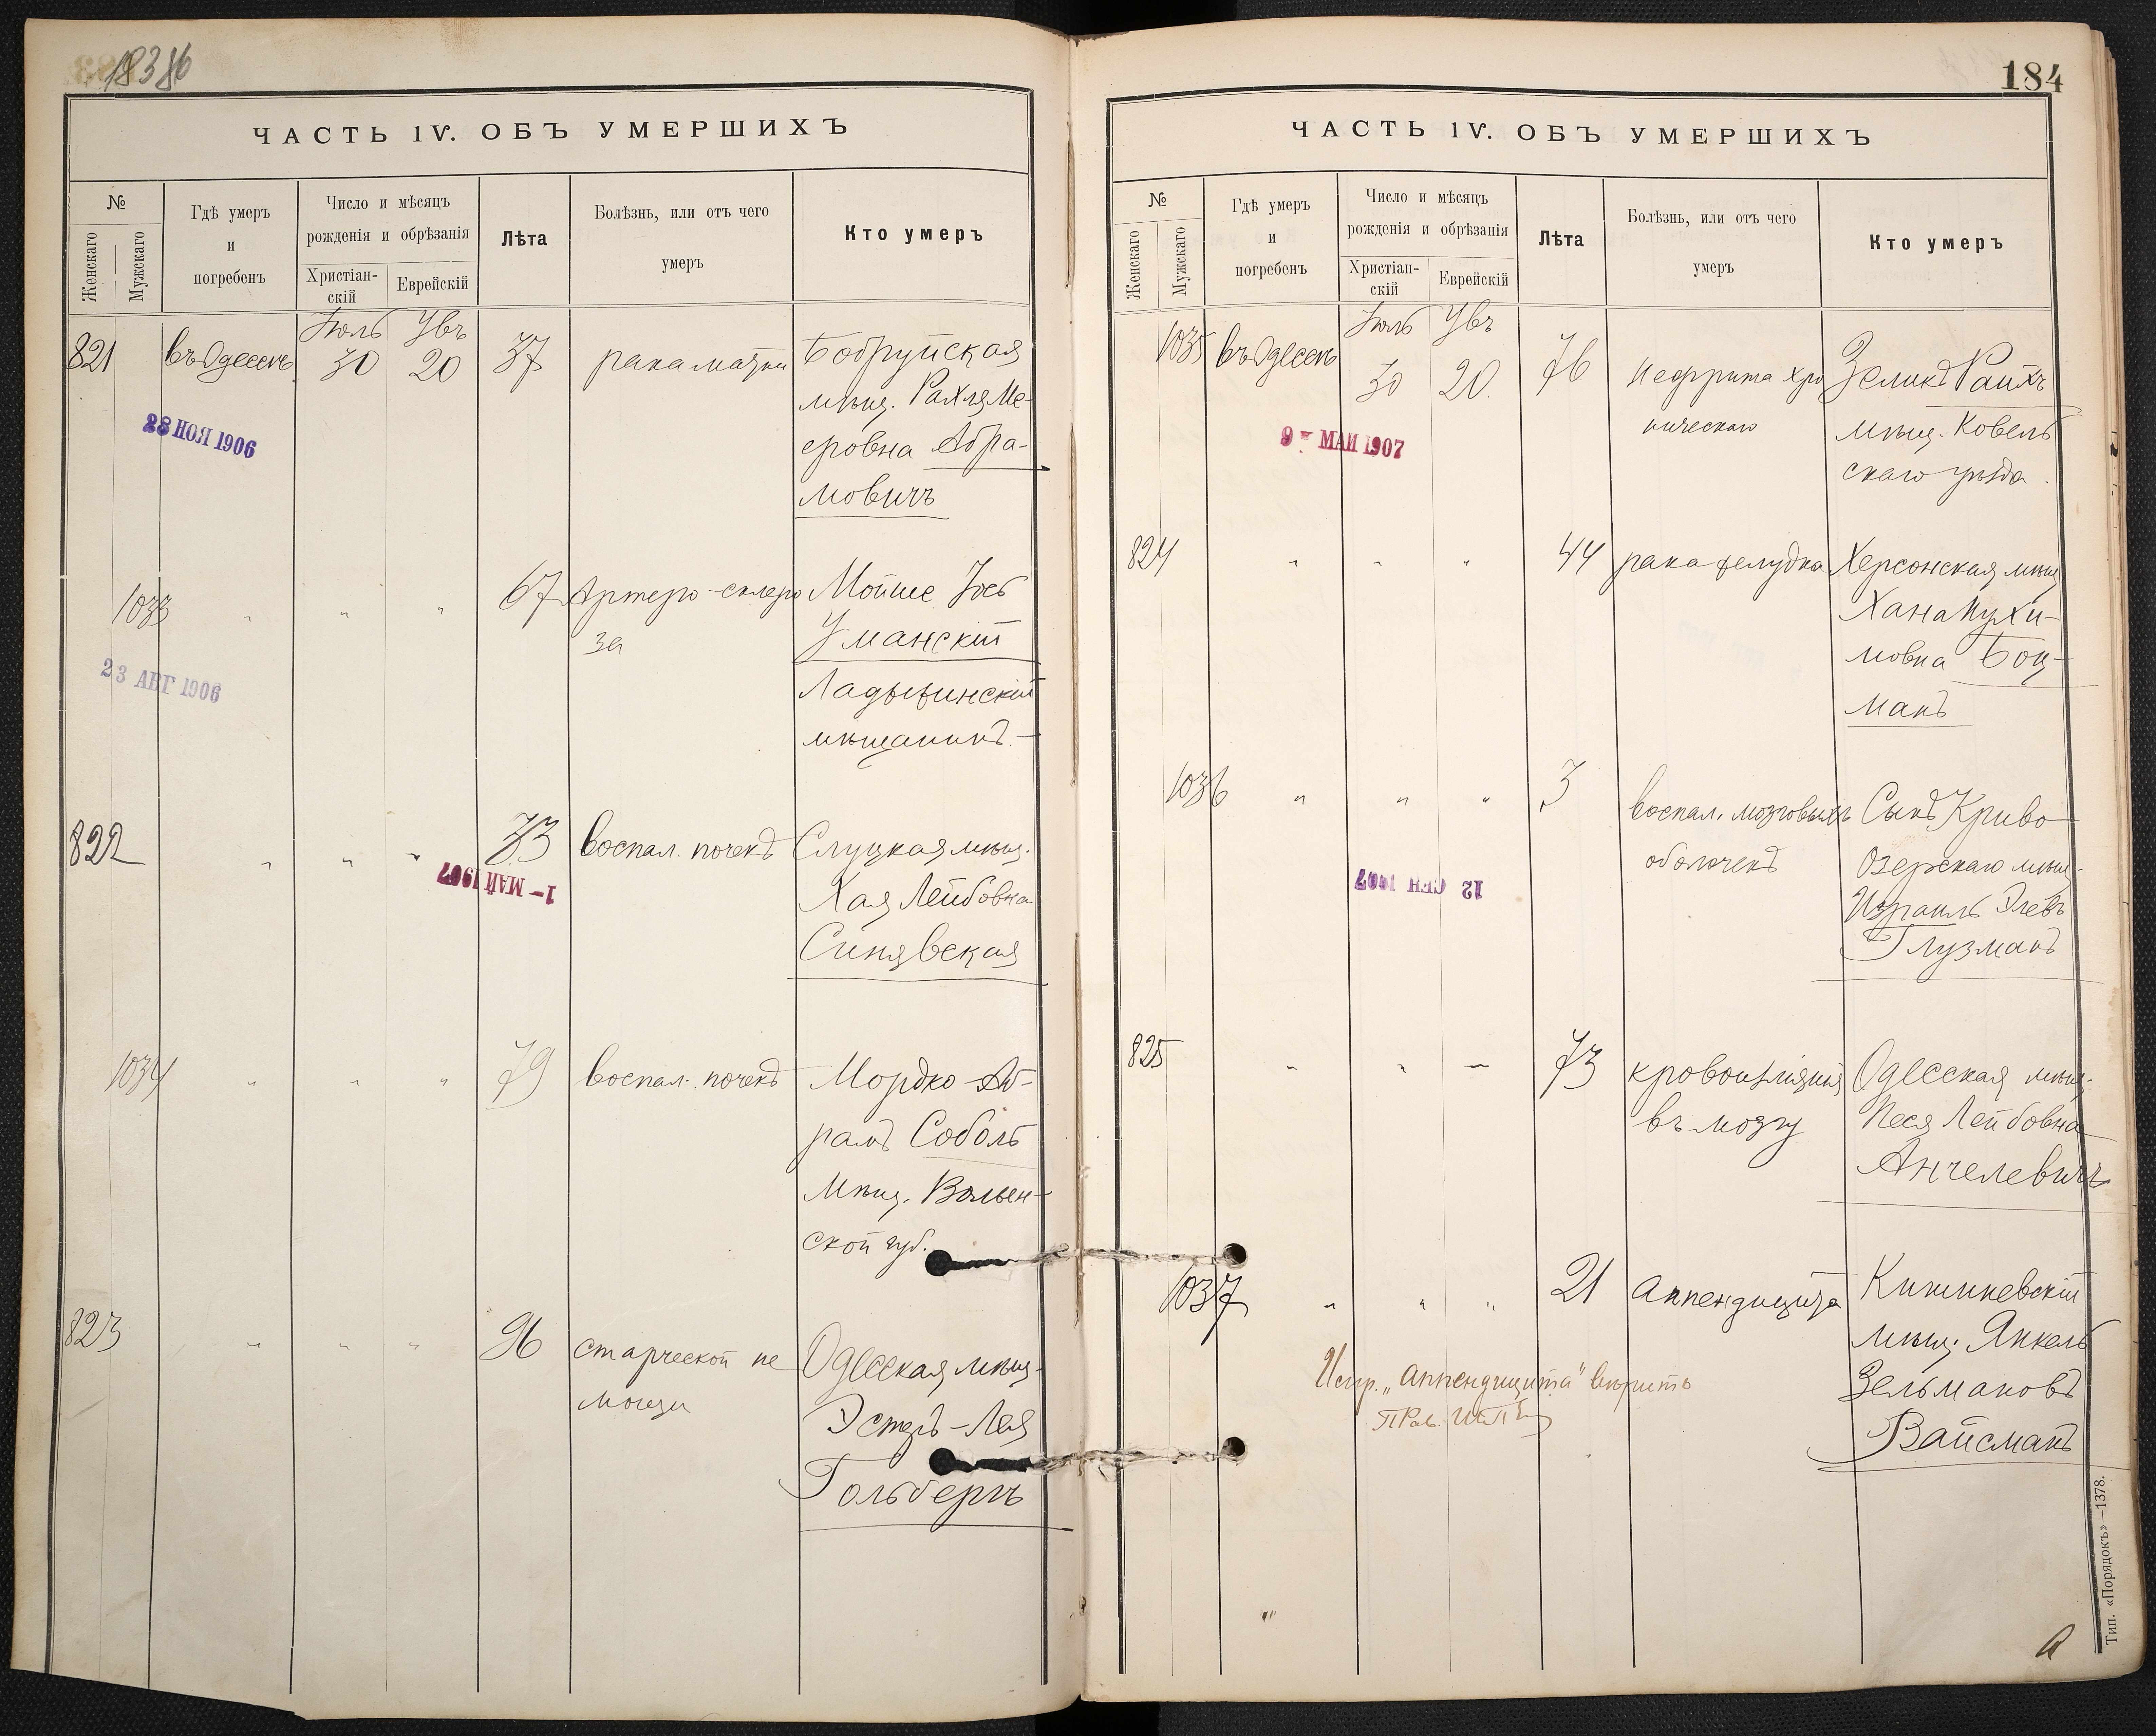 ЧАСТЬ IV. ОБЪ УМЕРШИХЪ
№
Женскаго
Мужскаго
Гдѣ умеръ
и
погребенъ
Число и мѣсяцъ
рожденія и обрѣзанія
Христіан-
скій
Еврейскій
Лѣта
Болѣзнь, или отъ чего
умеръ
Кто умеръ
Іюль Увъ
821 въ Одессѣ 30 20 37 рака матки Бобруйская
мѣщ. Рахля Ме-
еровна Абра-
мовичъ
28 НОЯ 1906
1033 " " " 67 Артеро-склеро Мойше Іось
за Уманскій
Ладыжинскій
мѣщанинъ.
23 АВГ 1906
822 " " " 73 воспал. почекъ Слуцкая мѣщ.
Хая Лейбовна
Синявская
1- МАЙ 1907
1034 " " " 79 воспал. почекъ Мордко-Аб-
рамъ Соболь
мѣщ. Волын-
ской губ.
823 " " " 96 старческой не Одесская мѣщ.
мощи Эстеръ-Лея
Гольбергъ
184
ЧАСТЬ IV. ОБЪ УМЕРШИХЪ
№
Женскаго
Мужскаго
Гдѣ умеръ
и
погребенъ
Число и мѣсяцъ
рожденія и обрѣзанія
Христіан-
скій
Еврейскій
Лѣта
Болѣзнь, или отъ чего
умеръ
Кто умеръ
Іюль Увъ
1035 въ Одессѣ 30 20. 76 Нефрита хро Зеликъ Райхъ
ническаго мѣщ. Ковель
скаго уѣзда.
9 МАЙ 1907
824 " " " 44 рака желудка Херсонская мѣщ
Хана Нухи-
мовна Боц-
манъ
1036 " " " 3 воспал. мозговыхъ Сынъ Криво
оболочекъ Озерскаго мѣщ.
Израиль Элевъ
Глузманъ
12 СЕН 1907
825 " " " 73 кровоизліянія Одесская мѣщ.
въ мозгу Песя Лейбовна
Анчелевичъ
1037 " " " 21 Аппендицита Кишиневскій
мѣщ. Янкель
Зельмановъ
Вайсманъ
Испр. „Аппендицита" вѣрить
Тип. «Порядокъ»—1378.